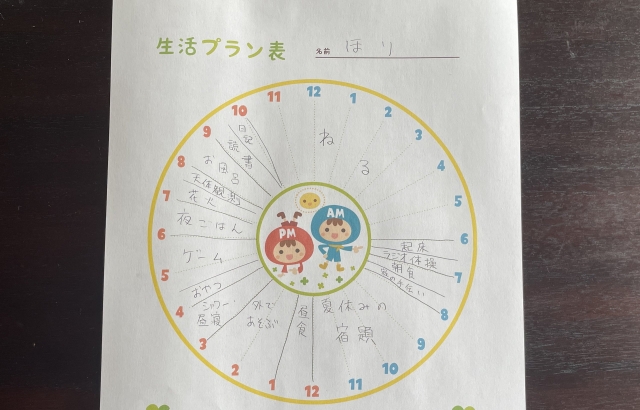 生活プラン表
名前 ほり
12
1
2
3
4
5
6
7
8
9
10
11
12
1
2
3
4
5
6
7
8
9
10
11
AM
PM
ねる
起床
ラジオ体操
朝食
夏休みの
宿題
昼食
外で
あそぶ
シャワー・
昼寝
おやつ
ゲーム
夜ごはん
花火
天体観測
お風呂
読書
日記